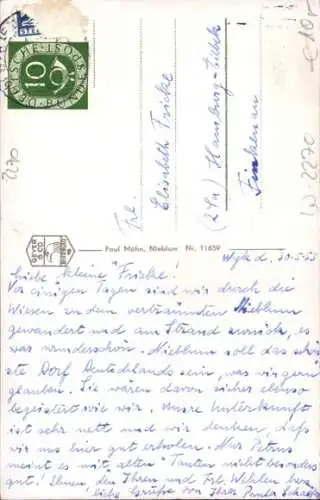 DEUTSCHE BUNDESPOST
10
Frl.
Elisabeth Fricke
(24a) Hamburg-
Finkenau
2270
W-2270
Paul Mühn, Nieblum Nr. 11659
Wyk d. 30.5.53
Liebe "kleine" Fricke!
Vor einigen Tagen sind wir durch die
Wiesen zu dem verträumten Nieblum
gewandert und am Strand zurück, es
war wunderschön. Nieblum soll das schön
ste Dorf Deutschlands sein, was wir gern
glauben. Sie wären davon sicher ebenso
begeistert wie wir. Unsre Unterkunft
ist sehr nett und wir denken, daß
wir uns hier gut erholen. Nur Petrus
meint es mit "alten" Tanten nicht besonders
gut! Ihnen, den Ihren und Frl. Wehlen
liebe Grüße von Ihrer Paula